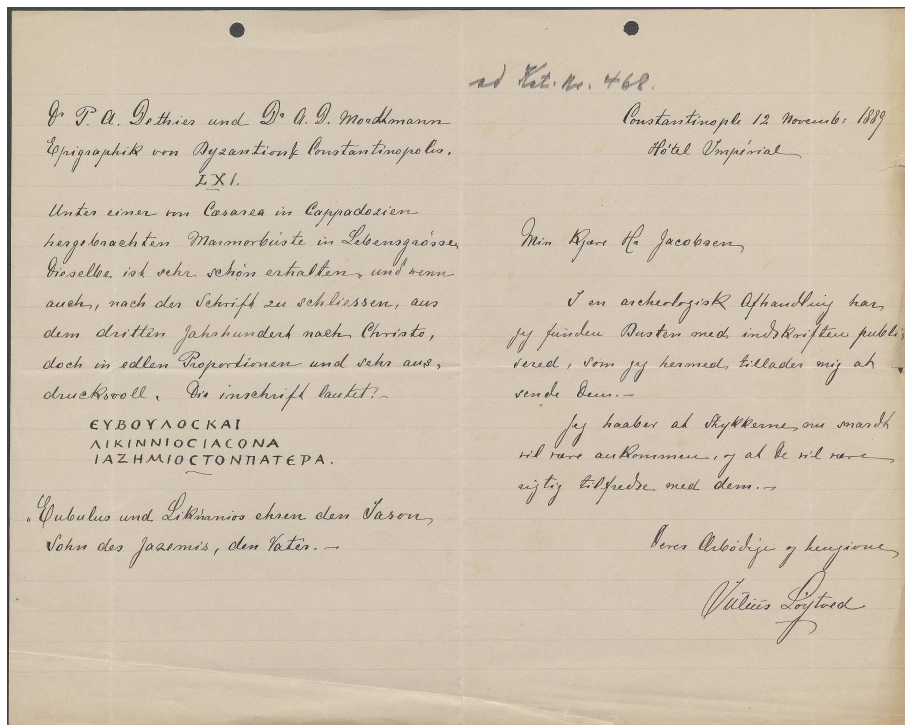 Dr P. A. Dethier und Dr A. D. Mordtmann
Epigraphik von Byzantion & Constantinopolis.
LXI.
Unter einer von Cæsarea in Cappadozien
hergebrachten Marmorbüste in Lebensgrösse,
Dieselbe ist sehr schön erhalten, und wenn
auch, nach der Schrift zu schliessen, aus
dem dritten Jahrhundert nach Christo,
doch in edlen Proportionen und sehr aus,
drucksvoll. Die inschrift lautet:-
ΕΥΒΟΥΛΟCΚΑΙ
ΛΙΚΙΝΝΙΟCΙΑCΟΝΑ
ΙΑΖΗΜΙΟCΤΟΝΠΑΤΕΡΑ.
"Eubulus und Likinnios ehren den Jason,
Sohn des Jazemis, den Vater.-
ad Kat. Nr. 468.
Constantinople 12 Novemb: 1889
Hôtel Impérial
Min Kjære Hr Jacobsen,
I en archeologisk Afhandling har
jeg funden Busten med indskriften publi,
sered, som jeg hermed tillader mig at
sende Dem.-
Jeg haaber at Stykkerne nu snardt
vil være ankommen, og at De vil være
rigtig tilfredse med dem.-
Deres Ærbødige og hengivne
Julius Löytved